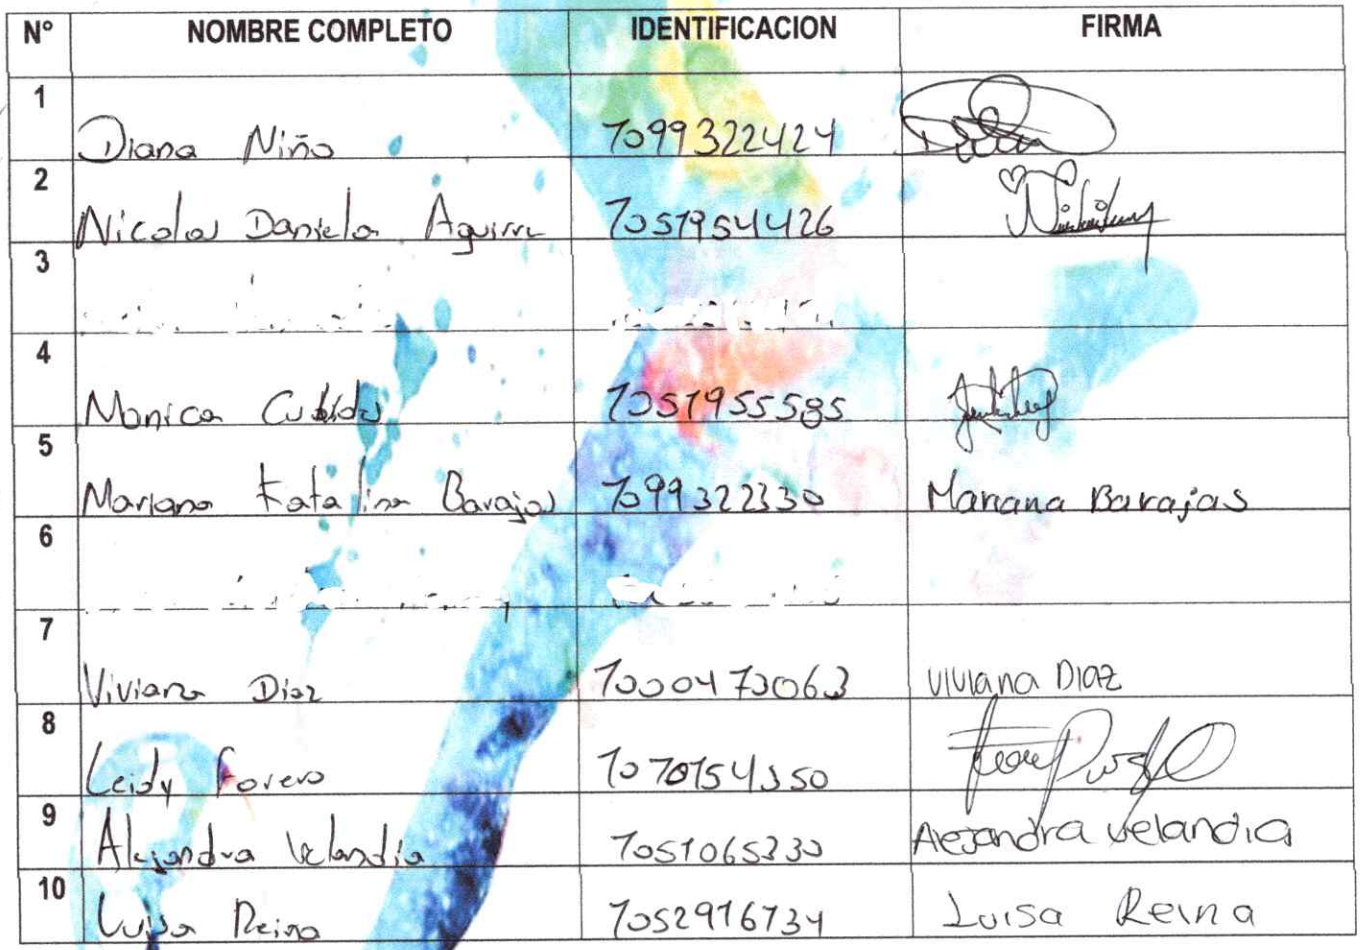 Nº NOMBRE COMPLETO IDENTIFICACION FIRMA
1 Diana Niño 1099322424
2 Nicolas Daniela Aguirre 1051954426
3
4 Monica Cubides 1051955585
5 Mariana Katalina Barajas 1099322330 Mariana Barajas
6
7 Viviana Diaz 1000473063 Viviana Diaz
8 Leidy Forero 1070154350
9 Alejandra Velandia 1051065330 Alejandra Velandia
10 Luisa Reina 1052916734 Luisa Reina